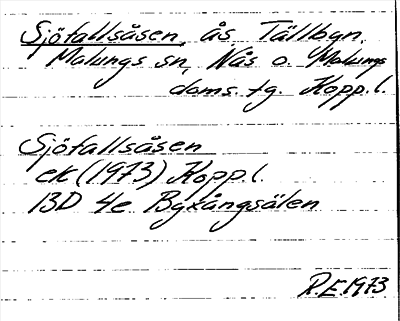 Sjöfallsåsen, ås, Tällbyn,
Malungs sn, Nås o. Malungs
doms. tg. Kopp.l.
Sjöfallsåsen
ek (1973) Kopp.l.
13D 4e Byxångsälen
R.E. 1973